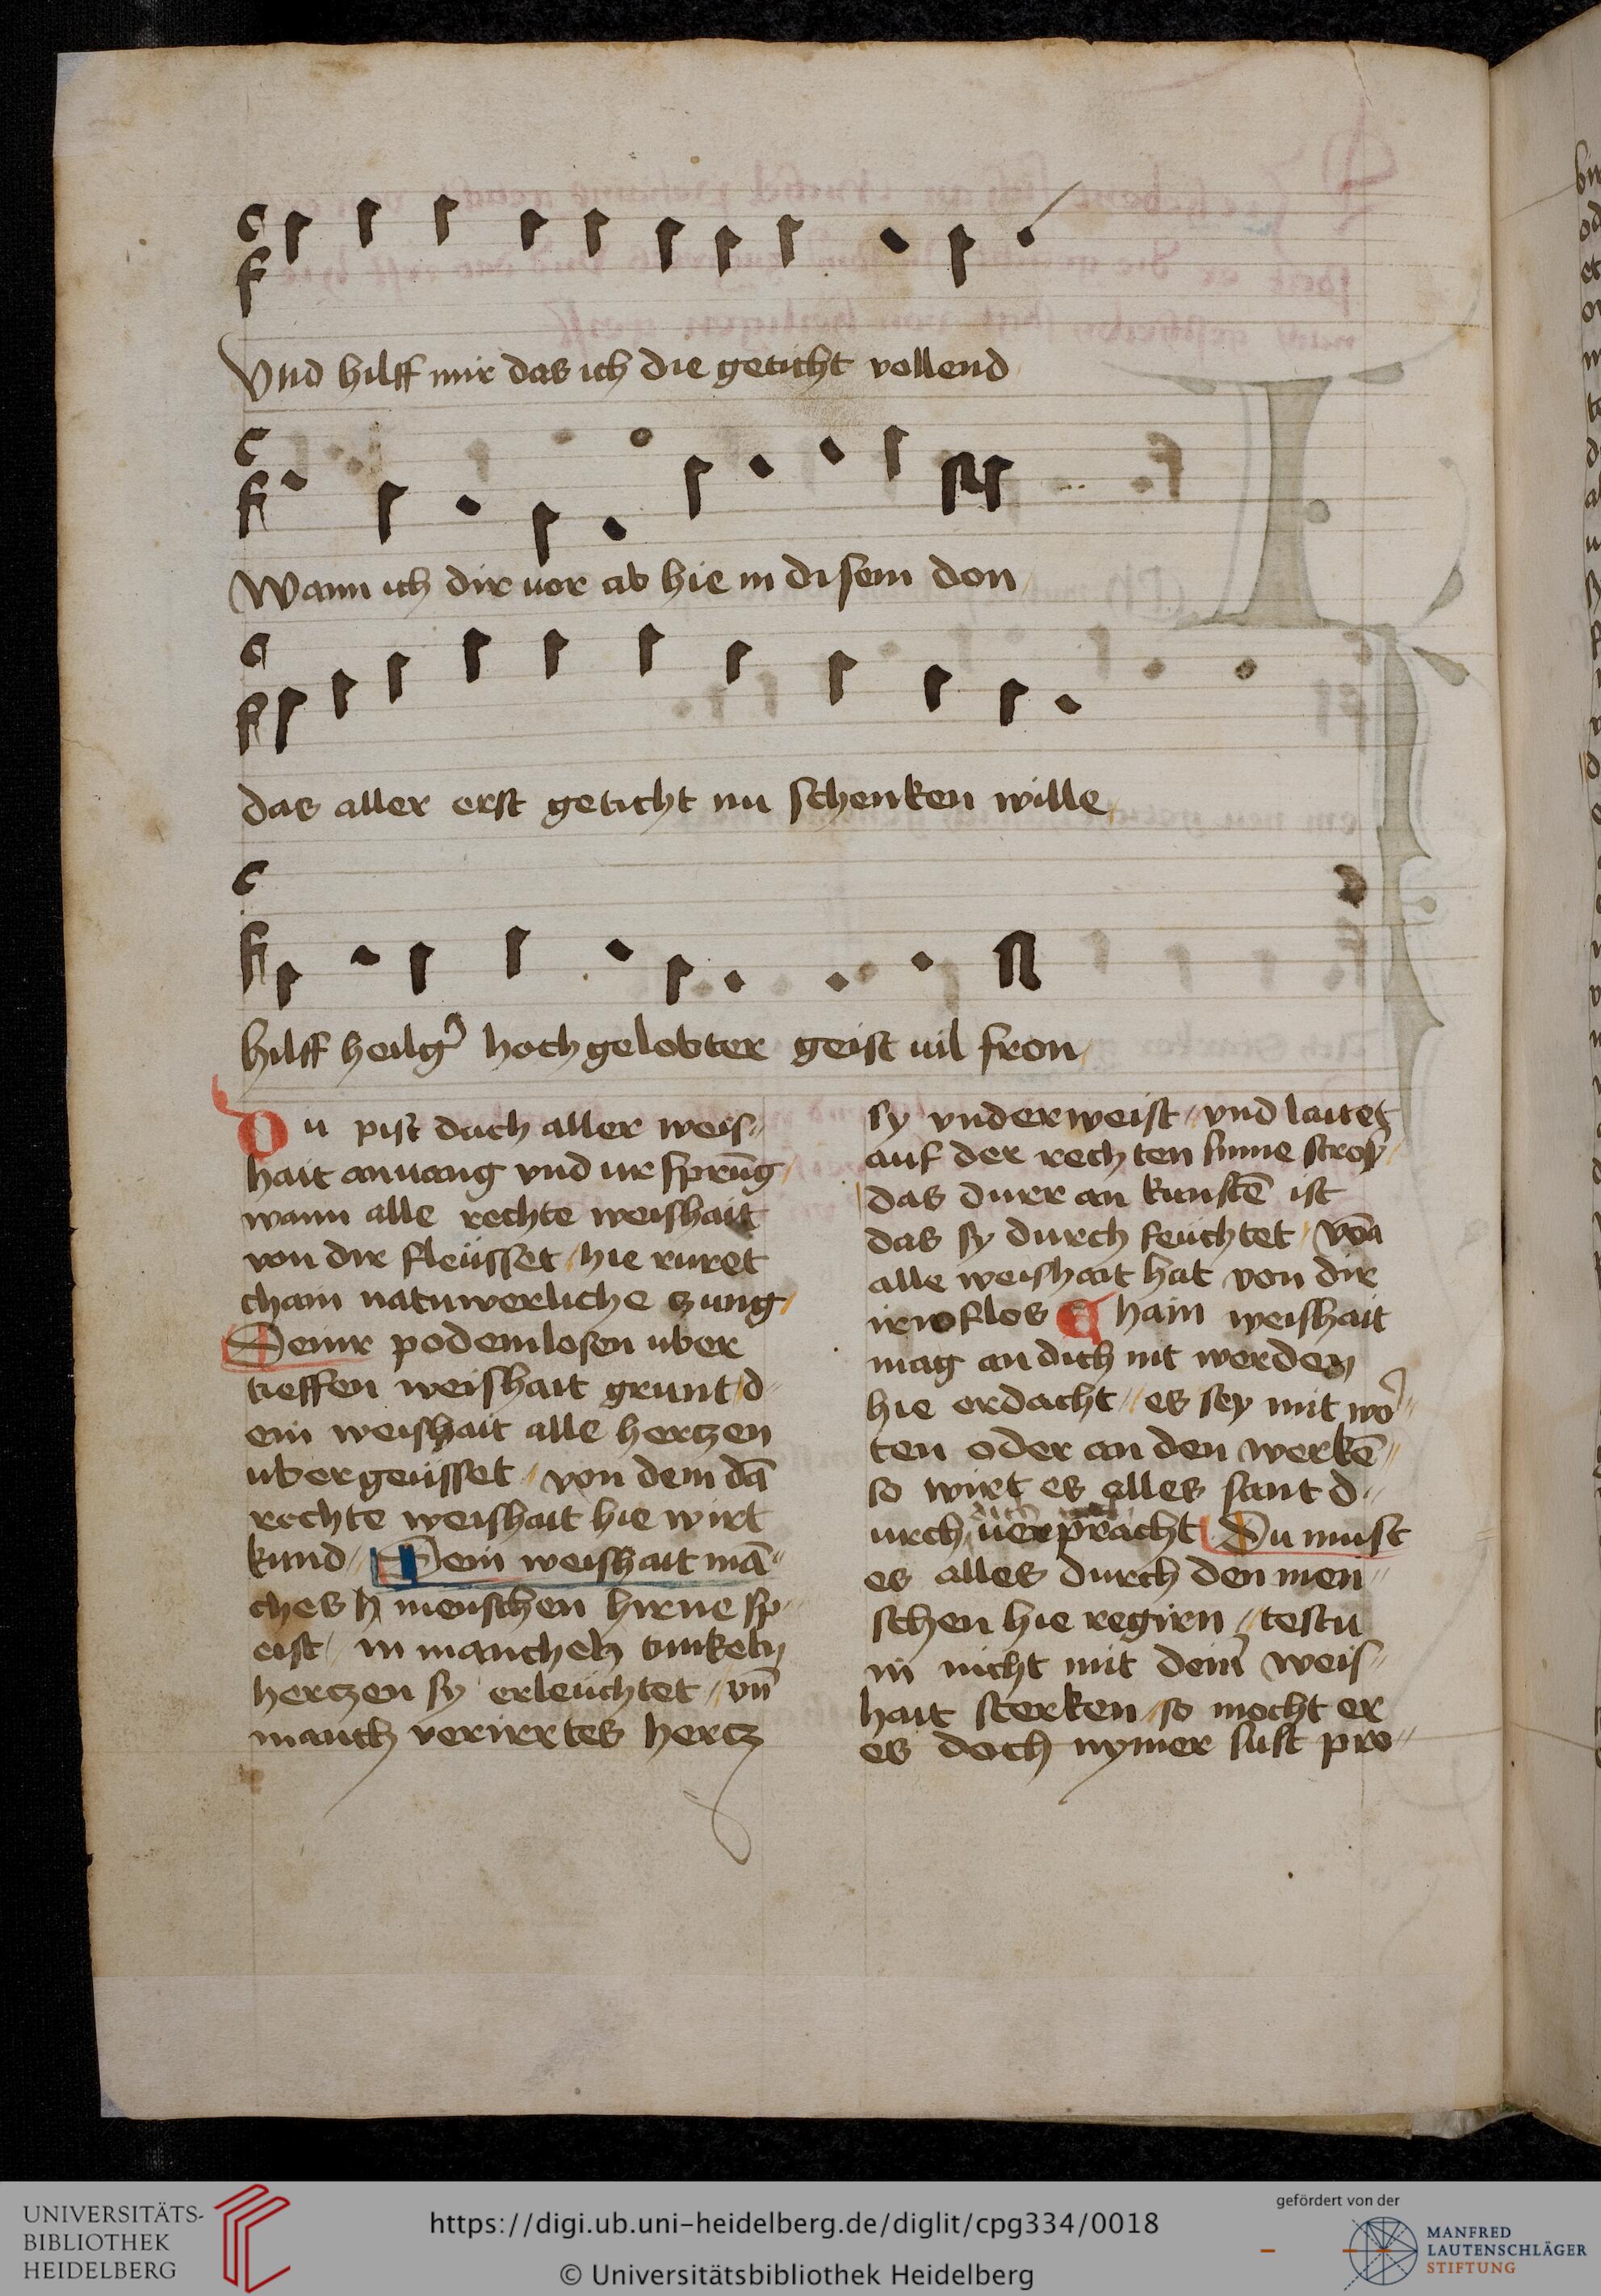 Vnd hilff mir das ich die geticht vollend
Wann ich dir vor ab hie in disem don
das aller erst geticht nu schenken wille
hilff heilgˀ hochgelobter geist vil fron
Du pist doch aller weis⸗
hait anuang vnd ur sprūg
wann alle rechte weishait
von dir fleüsset / hie ruret
chain naturwerliche zung /
Deinr podemlosen uber
tieffen weishait grunt / d⸗
ein weishait alle hertzen
ubergeüsset / von dem dā
rechte weishait hie wirt
kund / Dein weishait mā⸗
ches menschen hirne sp⸗
eist / in manchen tunkeln
hertzen sy erleüchtet / vn̄
manch verirrtes hertz
sy vnderweist / vnd laitet
auf der rechten sinne stros /
das durr an kunstē ist
das sy durch feüchtet / vōn
alle weishait hat von dir
irn flos Chain weishait
mag an dich nit werden
hie erdacht / es sey mit woˀ⸗
ten oder an den werkē /
so wirt es alles sant d⸗
urch dich uerpracht Du must
es alles durch den men⸗
schen hie regirn / testu
in nicht mit deinˀ weis⸗
hait sterken / so mocht er
es doch nymer sust pro⸗
UNIVERSITÄTS-
BIBLIOTHEK
HEIDELBERG
https://digi.ub.uni-heidelberg.de/diglit/cpg334/0018
© Universitätsbibliothek Heidelberg
gefördert von der
MANFRED
LAUTENSCHLÄGER
STIFTUNG